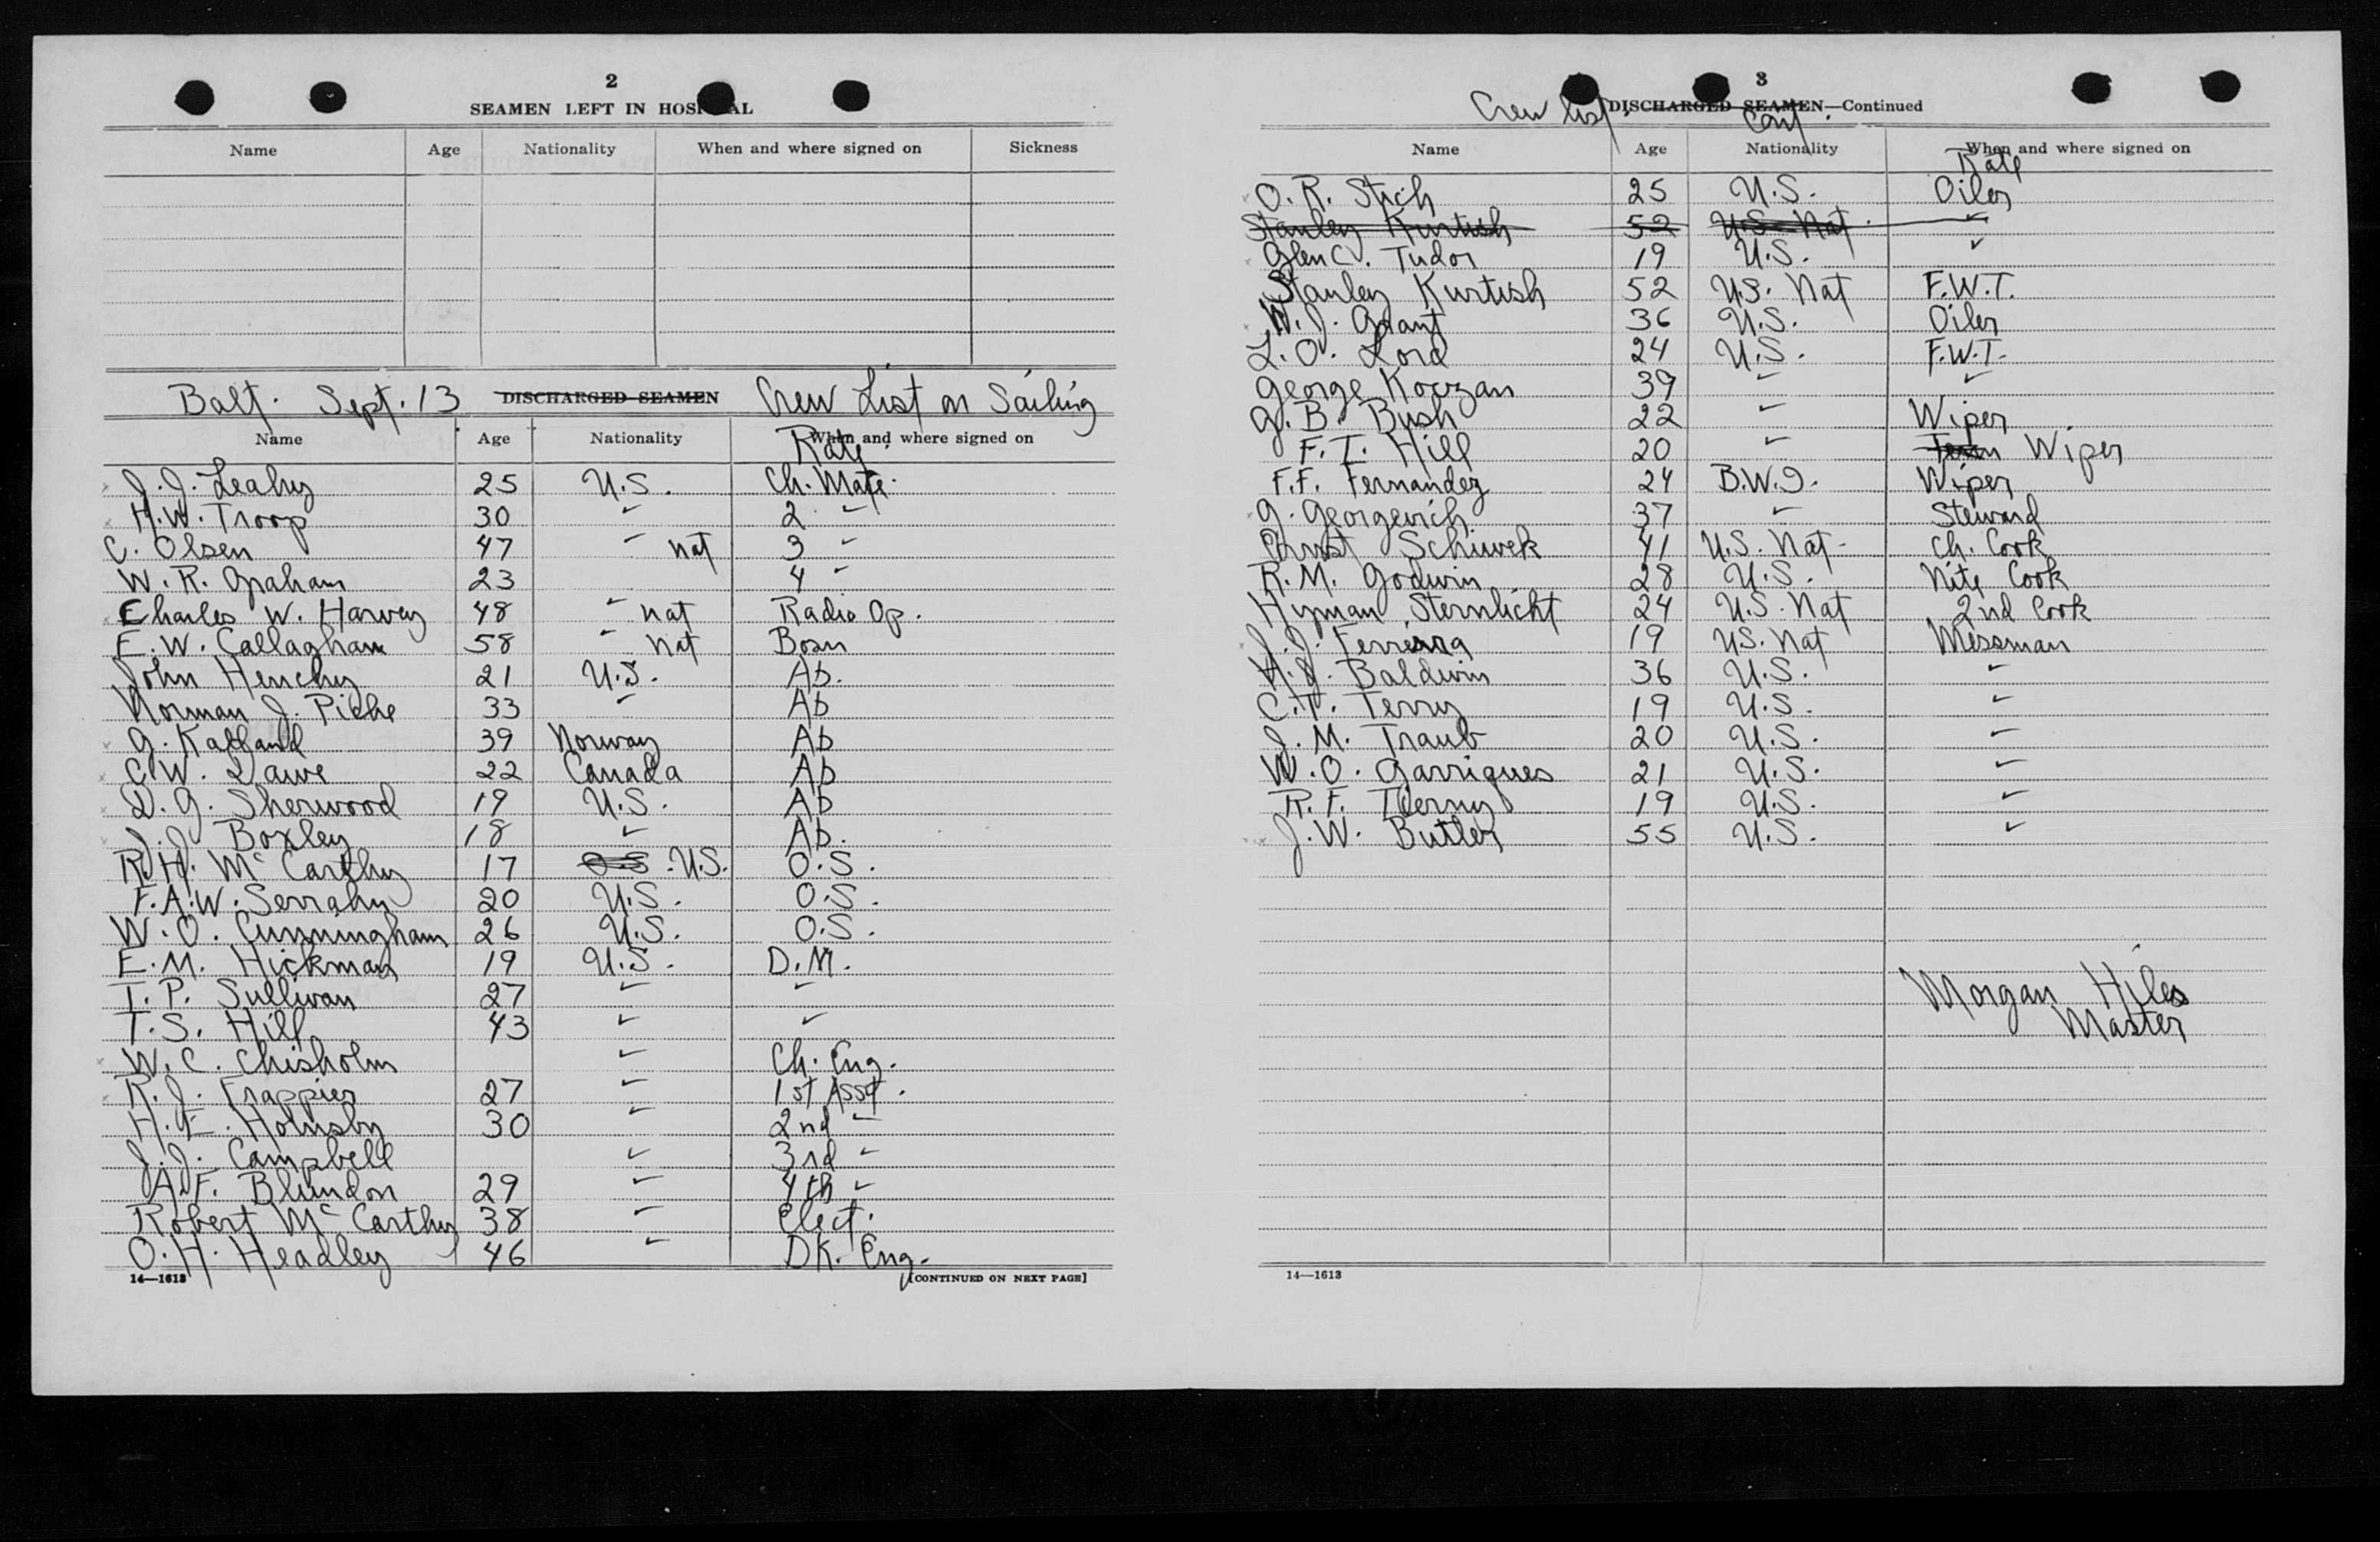 2
SEAMEN LEFT IN HOSPITAL
Name Age Nationality When and where signed on Sickness
Balt. Sept. 13 DISCHARGED SEAMEN Crew List on Sailing
Name Age Nationality When and where signed on
Rate
J. J. Leahy 25 U.S. Ch. Mate.
H. W. Troop 30 " 2 "
C. Olsen 47 " nat 3 "
W. R. Graham 23 4 "
Charles W. Harvey 48 " nat Radio Op.
E. W. Callagham 58 " nat Bosn
John Henchy 21 U.S. Ab.
Norman J. Piche 33 " Ab
G. Kalland 39 Norway Ab
C. W. Dawe 22 Canada Ab
D. G. Sherwood 19 U.S. Ab
J. J. Boxley 18 " Ab.
R. H. Mc Carthy 17 O.S. U.S. O.S.
F. A. W. Serrahy 20 U.S. O.S.
W. O. Cunningham 26 U.S. O.S.
E. M. Hickman 19 U.S. D.M.
T. P. Sullivan 27 " "
T. S. Hill 43 " "
W. C. Chisholm " Ch. Eng.
R. J. Frappier 27 " 1st Asst.
H. E. Holmsby 30 " 2nd "
J. J. Campbell " 3rd "
A. F. Blundon 29 " 4th "
Robert Mc Carthy 38 " Elect.
O. H. Headley 46 " DK. Eng.
14—1613 [CONTINUED ON NEXT PAGE]
3
Crew List DISCHARGED SEAMEN—Continued
Cont.
Name Age Nationality When and where signed on
Rate
O. R. Stich 25 U.S. Oiler
Stanley Kurtish 52 U.S. Nat "
Glen C. Tudor 19 U.S. "
Stanley Kurtish 52 U.S. Nat F.W.T.
W. J. Grant 36 U.S. Oiler
L. O. Lord 24 U.S. F.W.T.
George Koczan 39 " "
G. B. Bush 22 " Wiper
F. T. Hill 20 " Wiper
F. F. Fernandez 24 B.W.I. Wiper
G. Georgevich 37 " Steward
Ernst Schiwek 41 U.S. Nat. Ch. Cook
R. M. Godwin 28 U.S. Nite Cook
Hyman Sternlicht 24 U.S. Nat 2nd Cook
J. J. Ferreira 19 U.S. Nat Messman
H. J. Baldwin 36 U.S. "
C. T. Terry 19 U.S. "
J. M. Traub 20 U.S. "
W. O. Garrigues 21 U.S. "
R. F. Tierny 19 U.S. "
J. W. Butler 55 U.S. "
Morgan Hiles
Master
14—1613